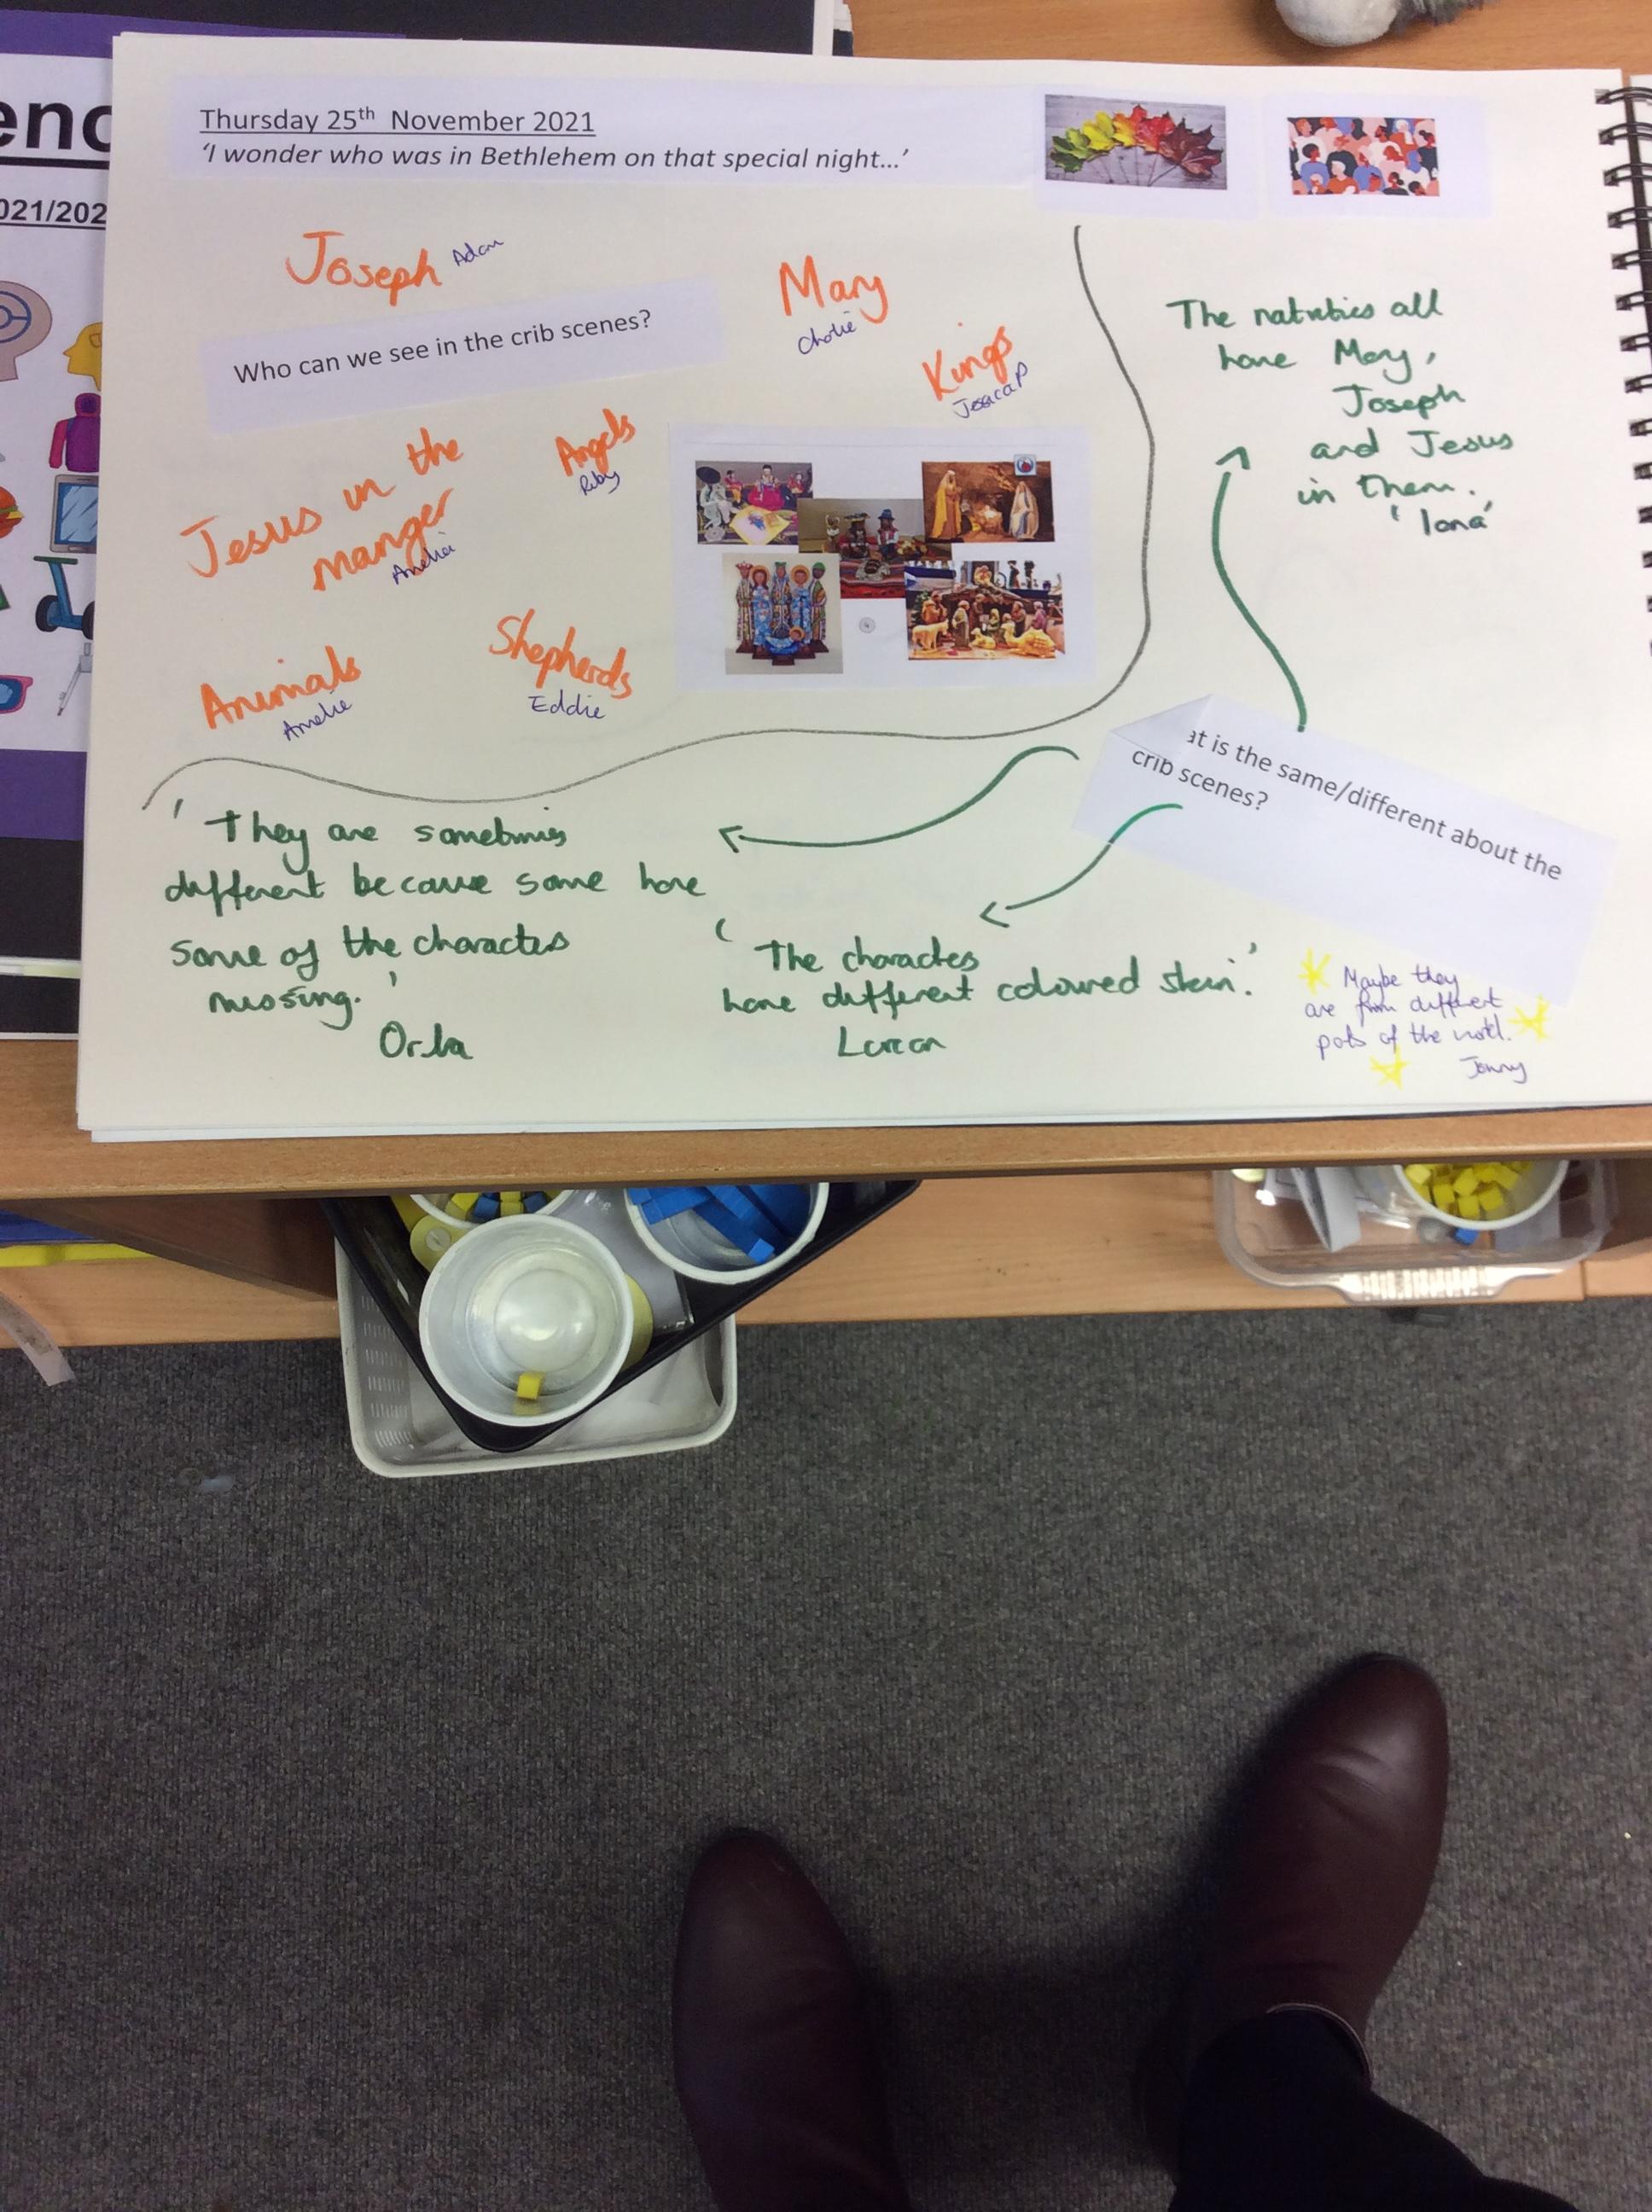 enc
021/202
Thursday 25th November 2021
'I wonder who was in Bethlehem on that special night...'
Joseph Adam
Who can we see in the crib scenes?
Mary
Kings
Jessica P
Jesus in the
manger
Amelia
Angels
Ruby
Animals
Amelie
Shepherds
Eddie
The nativities all
have Mary,
Joseph
and Jesus
in them.'
Iona
at is the same/different about the
crib scenes?
'They are sometimes
different because some have
some of the characters
missing.'
Orla
'The characters
have different coloured skin.'
Maybe they
are from different
parts of the world.
Jonny